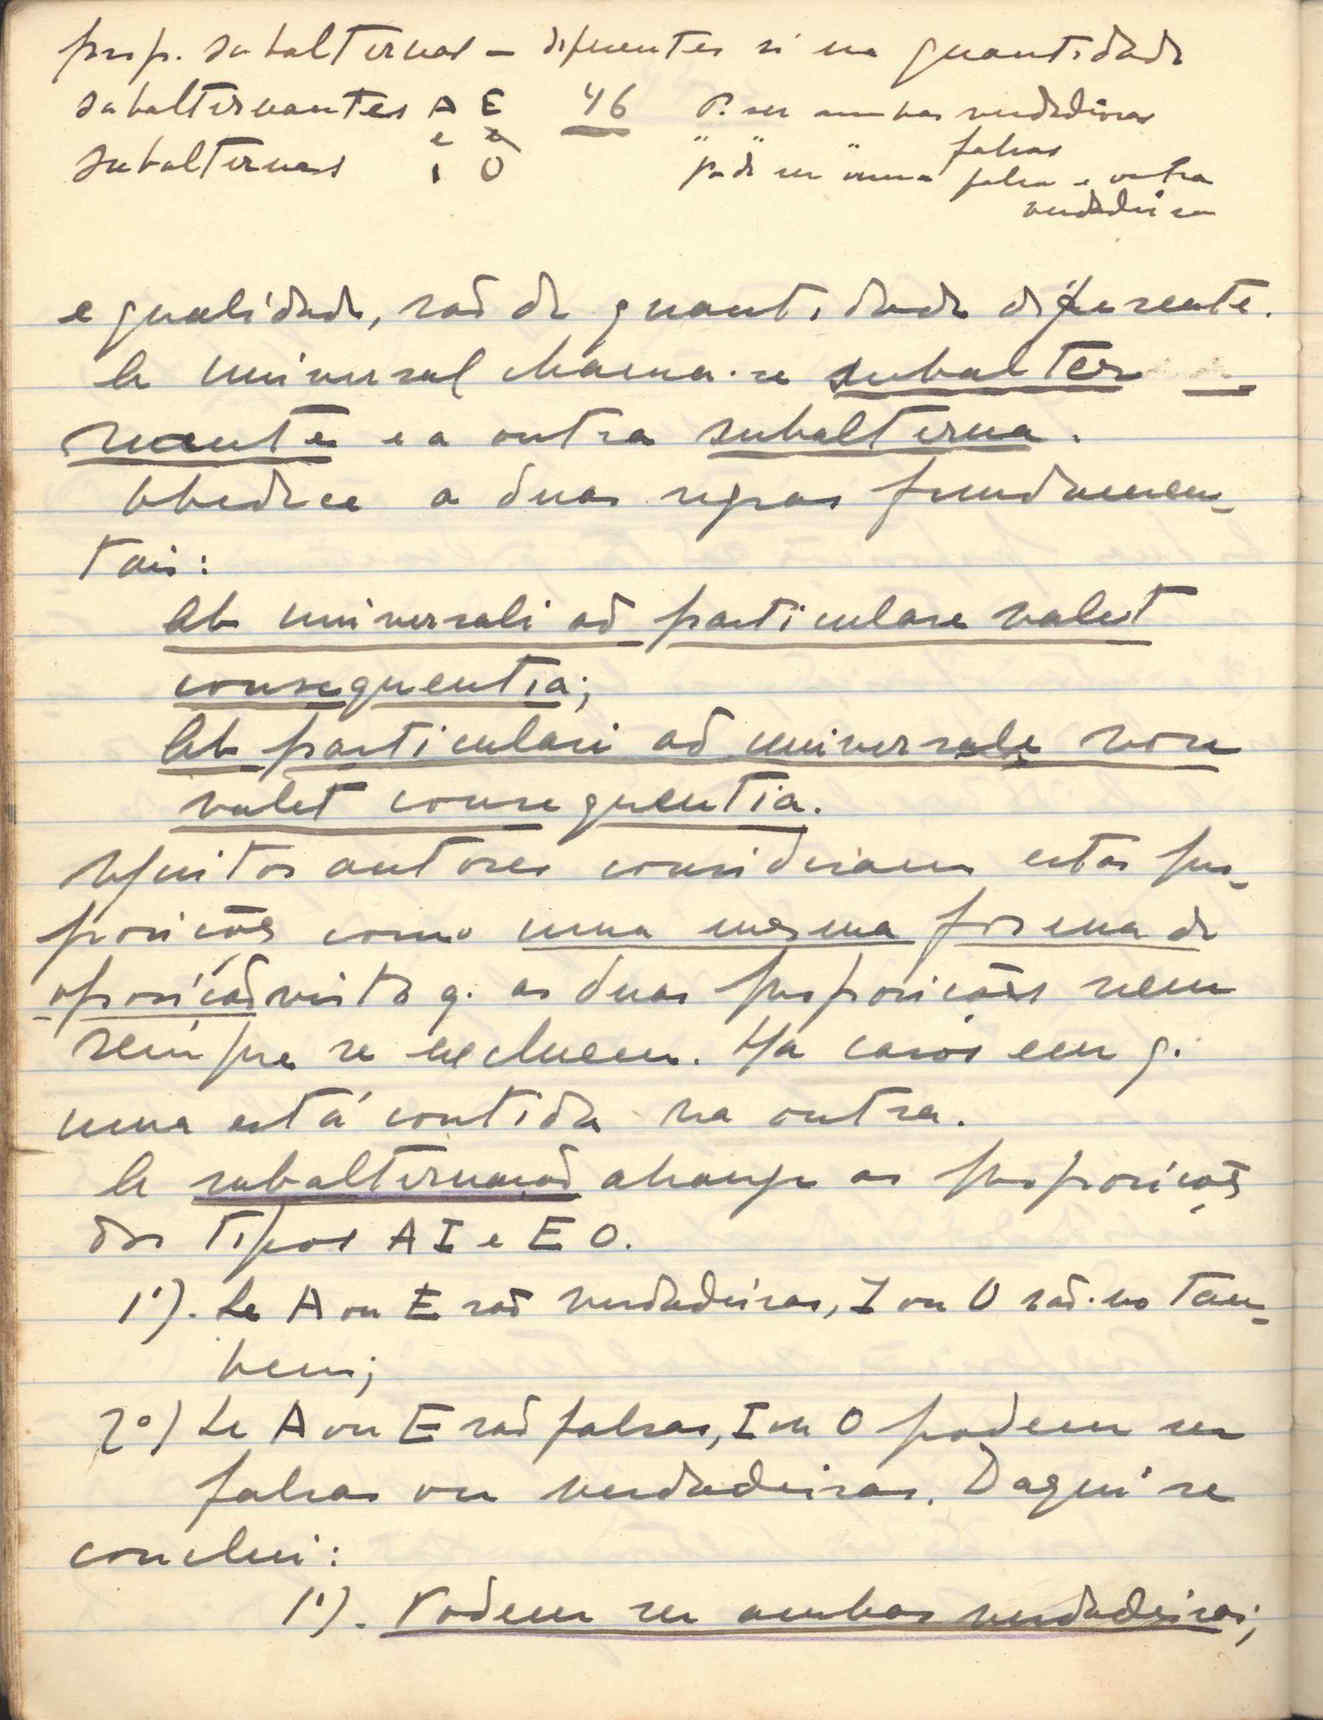 prop. subalternas - diferentes só na quantidade
subalternantes A E 46 P. ser ambas verdadeiras
e e " " " falsas
subalternas I O pode ser uma falsa e outra
verdadeira
e qualidade, são de quantidade diferente.
A universal chama-se subalter-
nante e a outra subalterna.
Obedece a duas regras fundamen-
tais:
Ab universali ad particulare valet
consequentia;
Ab particulari ad universale non
valet consequentia.
Muitos autores consideram estas pro-
posições como uma mesma forma de
oposição visto q. as duas proposições nem
sempre se excluem. Há casos em q.
uma está contida na outra.
A subalternação abrange as proposições
dos tipos A I e E O.
1º). Se A ou E são verdadeiras, I ou O são-no tam-
bem;
2º) Se A ou E são falsas, I ou O podem ser
falsas ou verdadeiras. Daqui se
conclui:
1º). Podem ser ambas verdadeiras;